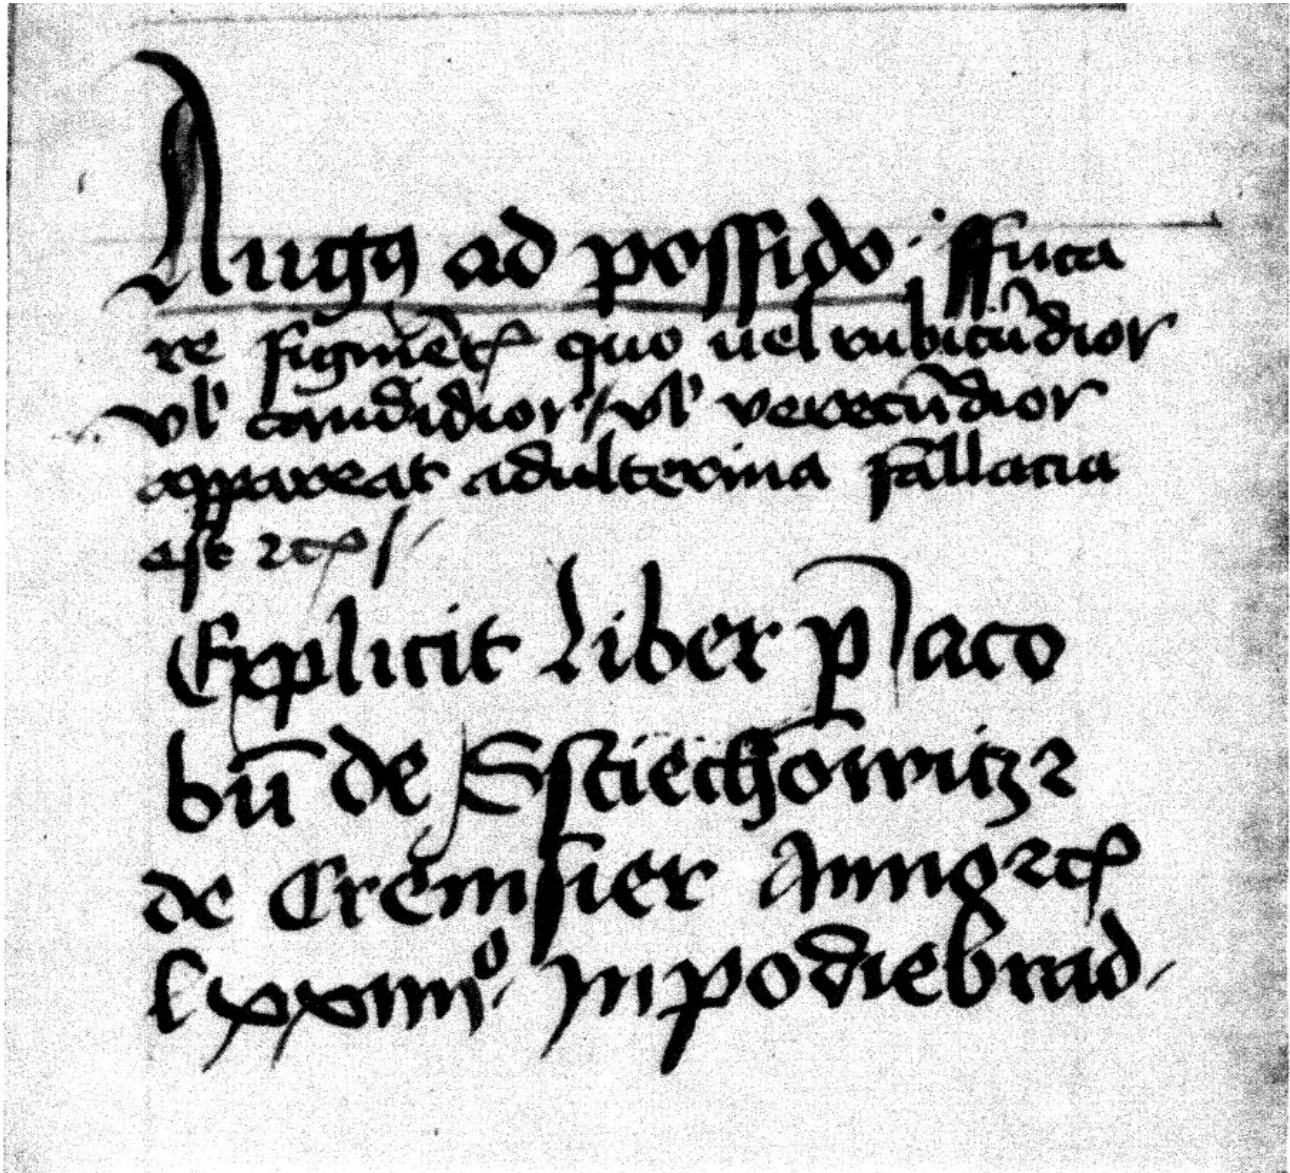 Augꝰ ad possido. ffuca
re figmētꝭ quo uel rubicūdior
vl' candidior / vl' verecūdior
appareat adulterina fallacia
est ⁊cꝭ
Explicit Liber p Jaco
bū de Sstiechowitz ⁊
de Cremsier Anno ⁊cꝭ
lxxiiiiº. In podiebrad.